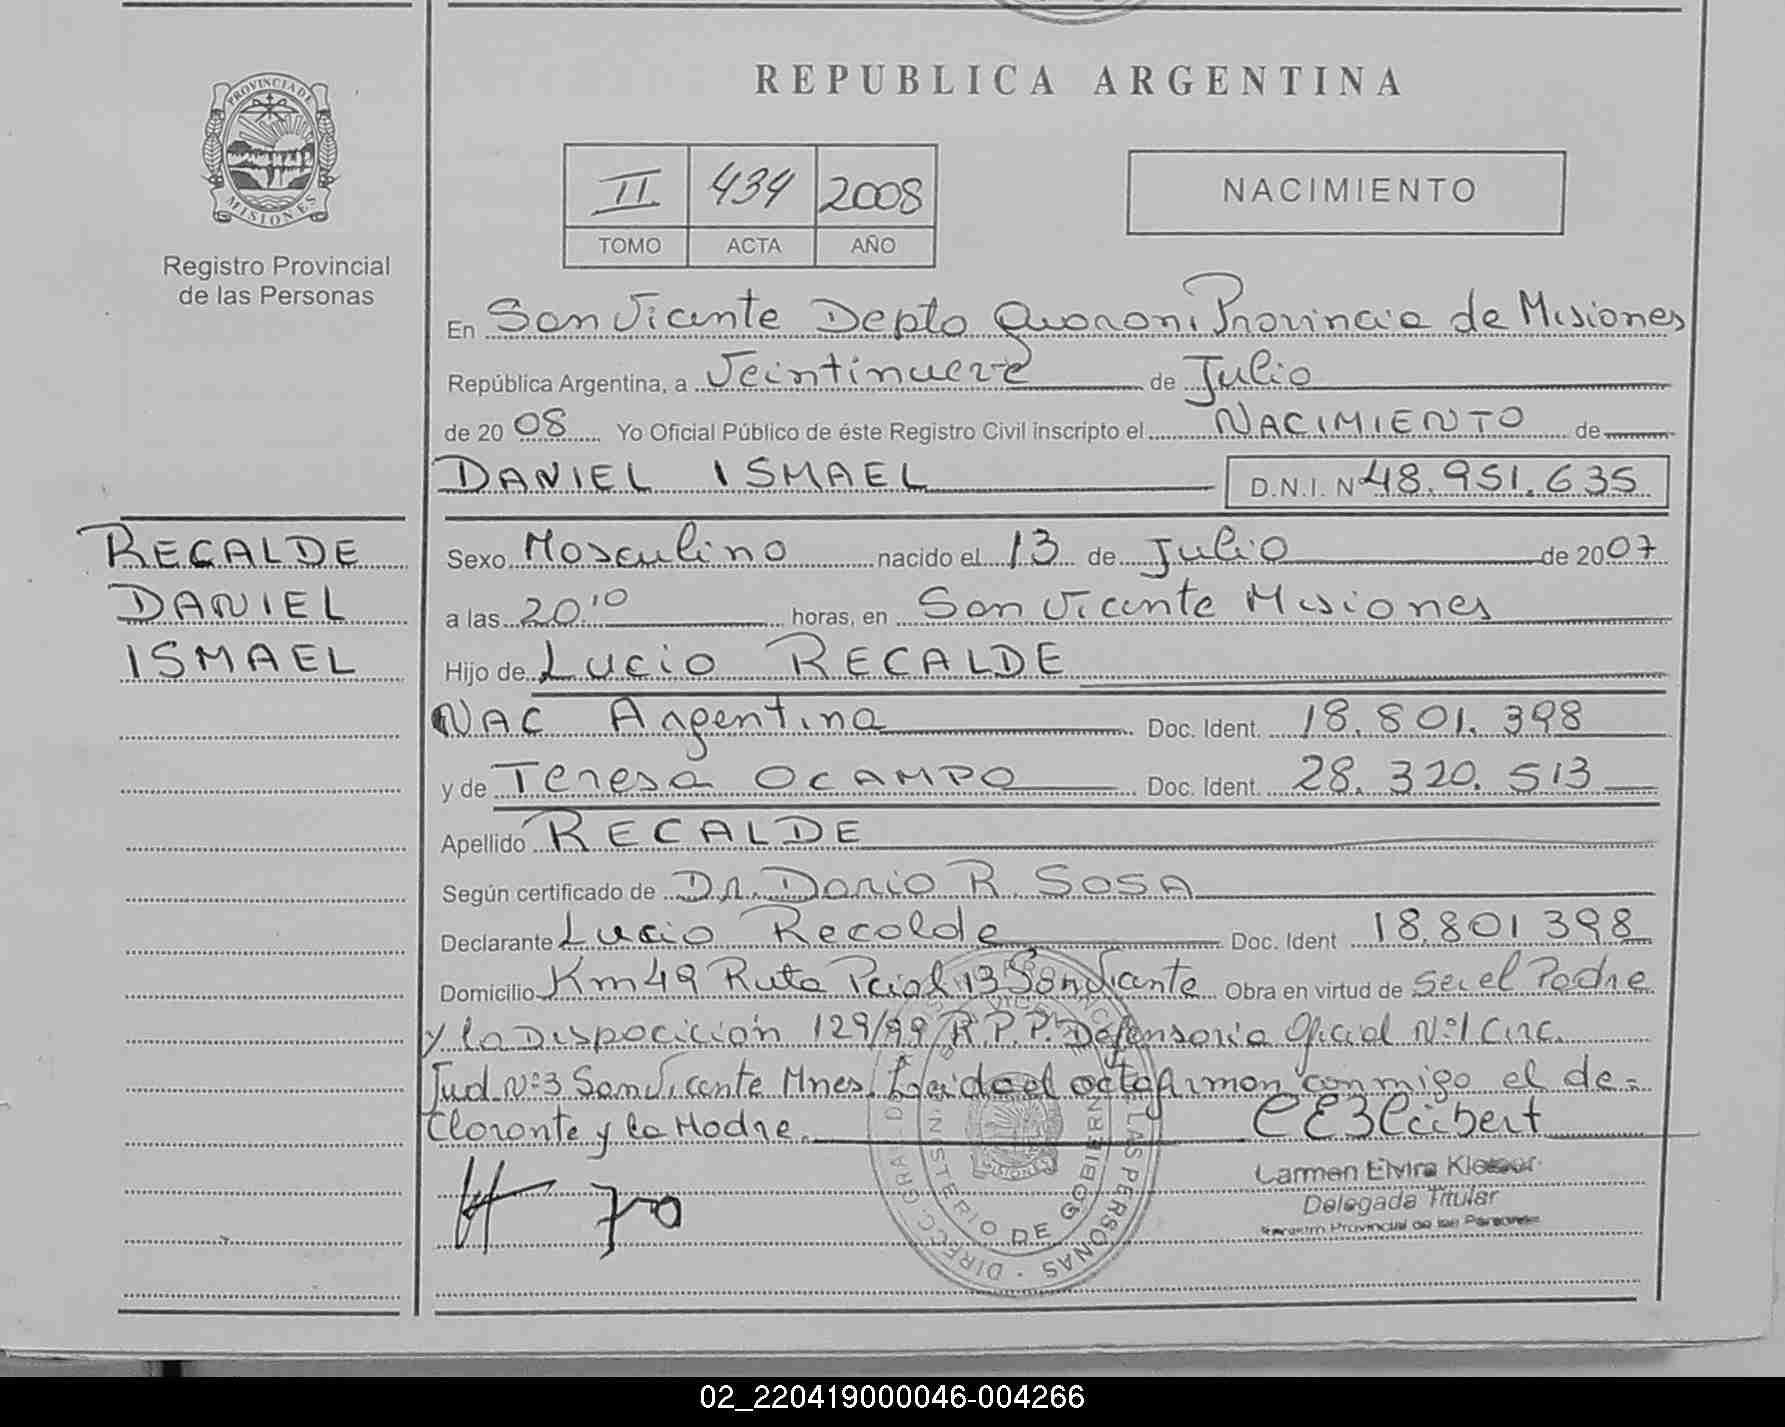 PROVINCIA DE
MISIONES
Registro Provincial
de las Personas
RECALDE
DANIEL
ISMAEL
REPUBLICA ARGENTINA
II 434 2008
TOMO ACTA AÑO
NACIMIENTO
En San Vicente Depto Guarani Provincia de Misiones
República Argentina, a Veintinueve de Julio
de 2008 Yo Oficial Público de éste Registro Civil inscripto el NACIMIENTO de
DANIEL ISMAEL D.N.I. Nº 48.951.635
Sexo Masculino nacido el 13 de Julio de 2007
a las 20'10 horas, en San Vicente Misiones
Hijo de Lucio RECALDE
NAC Argentina Doc. Ident. 18.801.398
y de Teresa OCAMPO Doc. Ident. 28.320.513
Apellido RECALDE
Según certificado de Dr. Dario R. SOSA
Declarante Lucio Recalde Doc. Ident 18.801 398
Domicilio Km 49 Ruta Pcial 13 San Vicente Obra en virtud de ser el Padre
y la Disposición 129/99 R.P.P. Defensoria Oficial Nº1 Circ.
Jud Nº3 San Vicente Mnes. Leida el acta firman conmigo el de=
clarante y la Madre.
Carmen Elvira
Delegada Titular
Registro Provincial de las Personas
MINISTERIO DE GOBIERNO
DIREC. GRAL. DE LAS PERSONAS
02_220419000046-004266